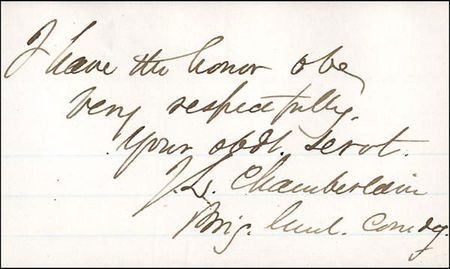 I have the honor to be
very respectfully,
Your obdt. servt.
J. L. Chamberlain
Brig. Genl. Comdg.